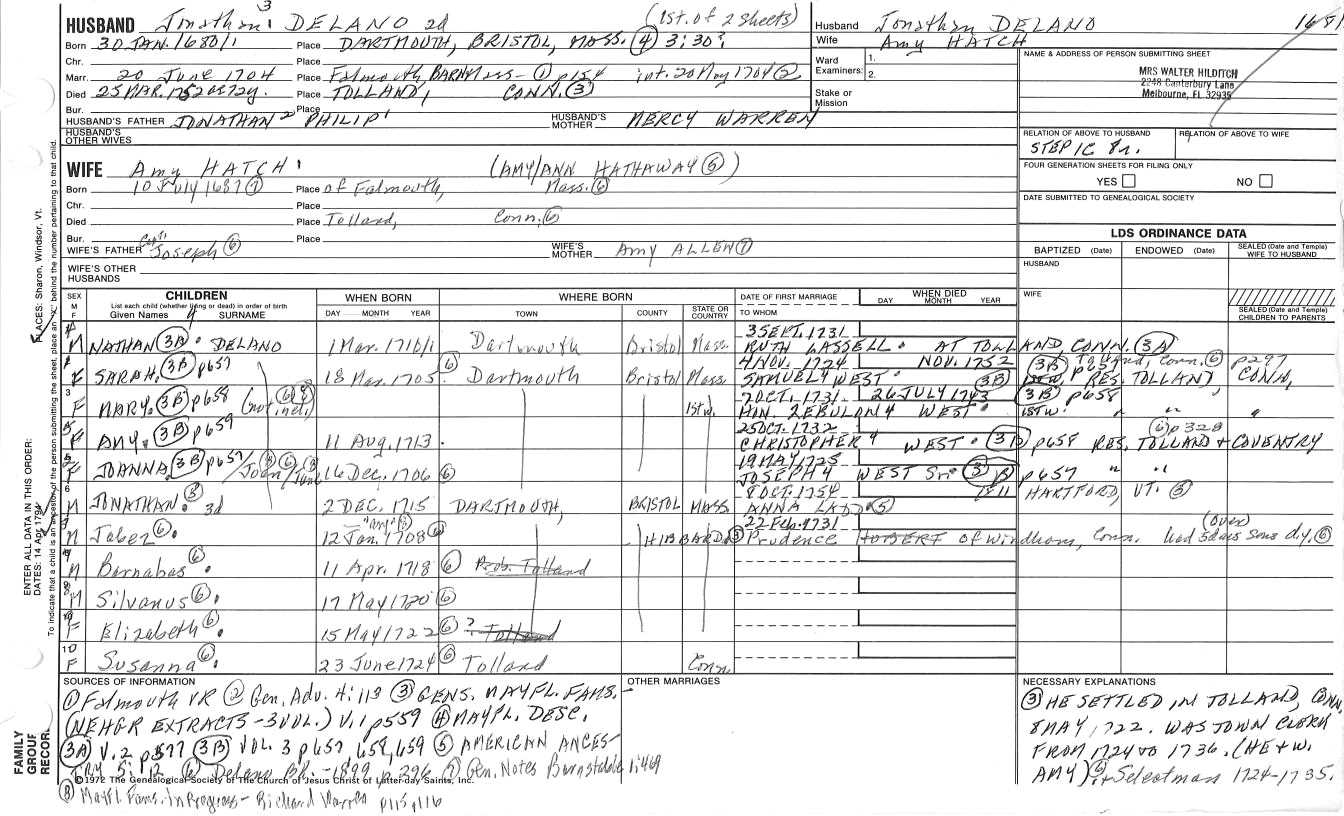 HUSBAND Jonathan³ DELANO 2d (1st. of 2 sheets)
Husband Jonathan DELANO 1681
Wife Amy HATCH
Born 30 JAN. 1680/1 Place DARTMOUTH, BRISTOL, MASS. ④ 3:30?
Chr. Place
Marr. 20 June 1704 Place Falmouth, BARN, Mass - ① p154 int. 20 May 1704 ②
Died 25 MAR. 1752 Place TOLLAND, CONN. ③
Bur. Place
Ward Examiners: 1. 2.
Stake or Mission
NAME & ADDRESS OF PERSON SUBMITTING SHEET
MRS WALTER HILDITCH
2248 Canterbury Lane
Melbourne, FL 32935
HUSBAND'S FATHER JONATHAN² PHILIP¹ HUSBAND'S MOTHER MERCY WARREN
HUSBAND'S OTHER WIVES
RELATION OF ABOVE TO HUSBAND RELATION OF ABOVE TO WIFE
STEP 1C 8r.
WIFE Amy HATCH (AMY/ANN HATHAWAY ⑤)
Born 10 July 1687 ⑦ Place of Falmouth, Mass. ⑥
Chr. Place
Died Place Tolland, Conn. ⑥
Bur. Place
WIFE'S FATHER Capt. Joseph ⑥ WIFE'S MOTHER Amy ALLEN ⑦
WIFE'S OTHER HUSBANDS
FOUR GENERATION SHEETS FOR FILING ONLY
YES NO
DATE SUBMITTED TO GENEALOGICAL SOCIETY
LDS ORDINANCE DATA
BAPTIZED (Date) ENDOWED (Date) SEALED (Date and Temple) WIFE TO HUSBAND
HUSBAND
WIFE
SEALED (Date and Temple) CHILDREN TO PARENTS
SEX M F CHILDREN WHEN BORN WHERE BORN DATE OF FIRST MARRIAGE WHEN DIED
List each child (whether living or dead) in order of birth
Given Names SURNAME DAY MONTH YEAR TOWN COUNTY STATE OR COUNTRY TO WHOM DAY MONTH YEAR
M NATHAN (3A) DELANO 1 Mar. 1710/1 Dartmouth Bristol Mass. 3 SEPT. 1731
RUTH LASSELL AT TOLLAND CONN. (3A)
F SARAH (3B) p657 18 Mar. 1705 ⑥ Dartmouth Bristol Mass 4 NOV. 1724 NOV. 1752 (3B) p657 Tolland, Conn. ⑥ p297
SAMUEL 4 WEST (3B) RES. TOLLAND, CONN.
3 F MARY (3B) p658 1st w. 7 OCT. 1731 26 JULY 1743 (3B) p658
ZEBULON 4 WEST 1ST W. " " "
F AMY (3B) p659 11 Aug. 1713 25 OCT. 1732 ⑥ p328
CHRISTOPHER 4 WEST (3B) p658 RES. TOLLAND & COVENTRY
F JOANNA (3B) p657 16 Dec. 1706 ⑥ 19 MAY 1725
JOSEPH 4 WEST Sr. (3B) p657 " "
6 M JONATHAN ③ 3d 2 DEC. 1715 DARTMOUTH, BRISTOL MASS 8 OCT. 1754
ANNA LADD ⑤ 1811 HARTFORD, VT. ⑤
M Jabez ⑥ 12 Jan. 1708 ⑥ HIBBARD 22 Feb. 1731 (over)
Prudence HOBERT of Windham, Conn. had 5 daus sons d.y. ⑥
M Barnabas ⑥ 11 Apr. 1718 ⑥ Prob. Tolland
M Silvanus ⑥ 17 May 1720 ⑥
F Elizabeth ⑥ 15 May 1722 ⑥ ? Tolland
10 F Susanna ⑥ 23 June 1724 ⑥ Tolland Conn.
SOURCES OF INFORMATION OTHER MARRIAGES NECESSARY EXPLANATIONS
① Falmouth VR ② Gen. Adv. 4:113 ③ GENS. MAYFL. FAMS. -
(NEHGR EXTRACTS - 3 VOL.) V. 1 p559 ④ MAYFL. DESC.
(3A) V. 2 p577 (3B) VOL. 3 p657, 658, 659 ⑤ AMERICAN ANCES-
TRY 5:12 ⑥ Delano Bk. - 1899 p. 296 ⑦ Gen. Notes Barnstable 1:469
©1972 The Genealogical Society of The Church of Jesus Christ of Latter-day Saints, Inc.
⑧ Mayfl. Fams. In Progress - Richard Warren p115, p116
③ HE SETTLED IN TOLLAND, CONN,
8 MAY, 1722. WAS TOWN CLERK
FROM 1724 TO 1736. (HE + W.
AMY) ⑥ + Selectman 1724-1735.
FAMILY GROUP RECOR.
ENTER ALL DATA IN THIS ORDER:
DATES: 14 Apr 1794
PLACES: Sharon, Windsor, Vt.